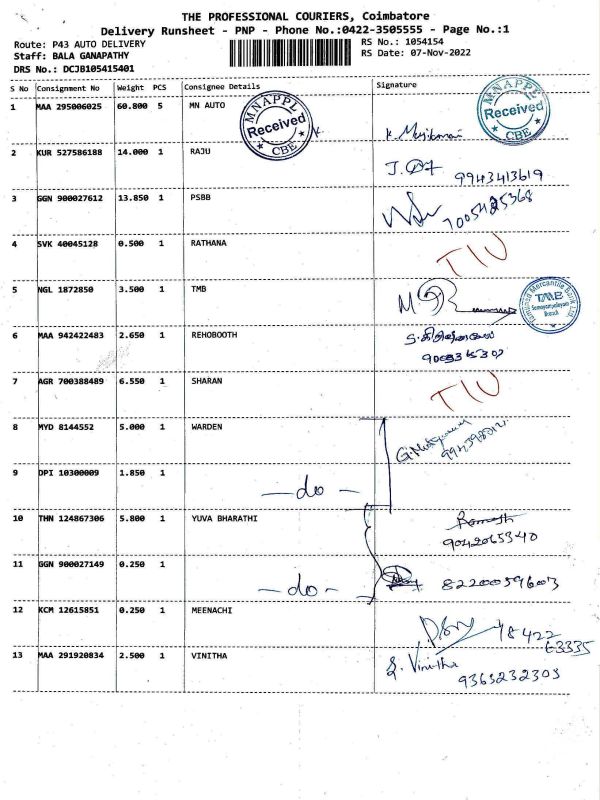 THE PROFESSIONAL COURIERS, Coimbatore
Delivery Runsheet - PNP - Phone No.:0422-3505555 - Page No.:1
Route: P43 AUTO DELIVERY RS No.: 1054154
Staff: BALA GANAPATHY RS Date: 07-Nov-2022
DRS No.: DCJB105415401
S No Consignment No Weight PCS Consignee Details Signature
1 MAA 295006025 60.800 5 MN AUTO
MNAPPL Received CBE
MNAPPL Received CBE
2 KUR 527586188 14.000 1 RAJU
9943413619
3 GGN 900027612 13.850 1 PSBB
7005425368
4 SVK 40045128 0.500 1 RATHANA
5 NGL 1872850 3.500 1 TMB
Tamilnad Mercantile Bank Ltd. TMB Branch
6 MAA 942422483 2.650 1 REHOBOOTH
7 AGR 700388489 6.550 1 SHARAN
8 MYD 8144552 5.000 1 WARDEN
9 DPI 10300009 1.850 1
- do -
10 THN 124867306 5.800 1 YUVA BHARATHI
Ramesh
9042065340
11 GGN 900027149 0.250 1
- do - 82200596003
12 KCM 12615851 0.250 1 MEENACHI
98422
63335
13 MAA 291920834 2.500 1 VINITHA S. Vinitha
9363232303